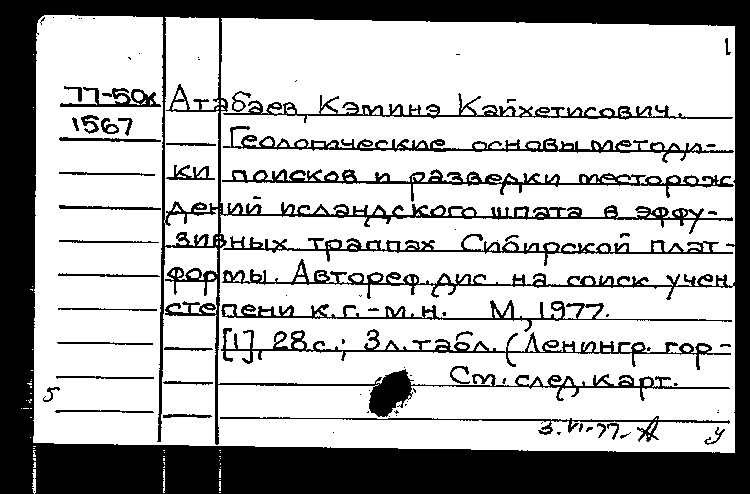 1
77-50к Атабаев, Кэминэ Кайхетисович.
1567
Геологические основы методи-
ки поисков и разведки месторож
дений исландского шпата в эффу-
зивных траппах Сибирской плат-
формы. Автореф. дис. на соиск. учен.
степени к.г.-м.н. М., 1977.
[1], 28 с.; 3 л. табл. (Ленингр. гор-
См. след. карт.
5
3.VI-77-
у